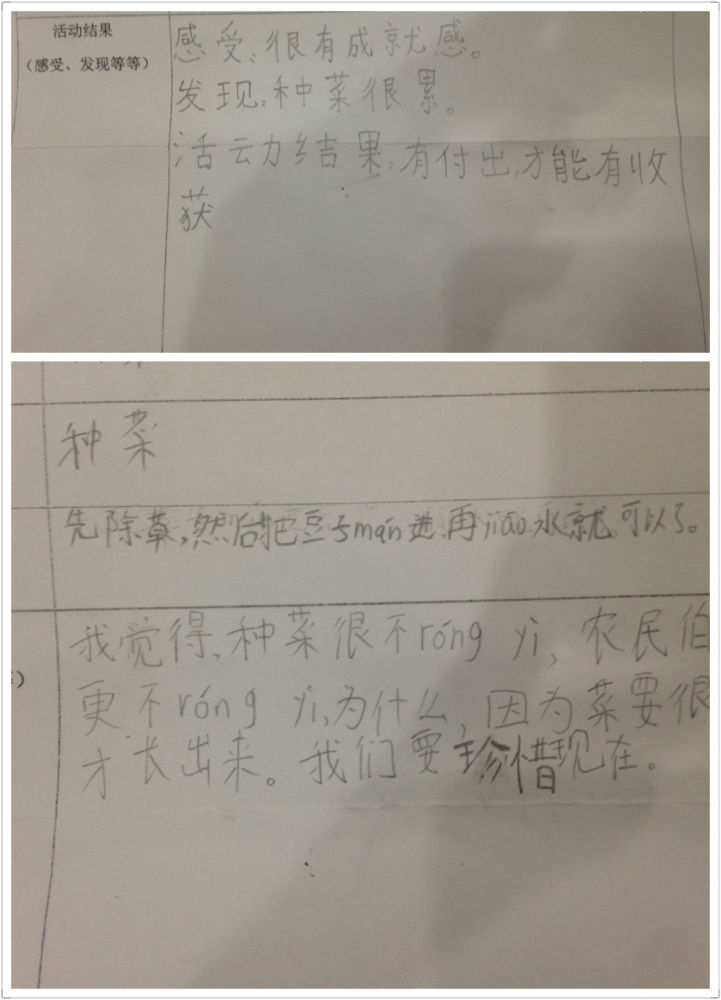 活动结果
（感受、发现等等）
感受：很有成就感。
发现：种菜很累。
活动结果：有付出，才能有收
获
种菜
先除草，然后把豆子mán进，再jiāo水就可以了。
我觉得，种菜很不róng yì，农民伯
更不róng yì，为什么，因为菜要很
才长出来。我们要珍惜现在。